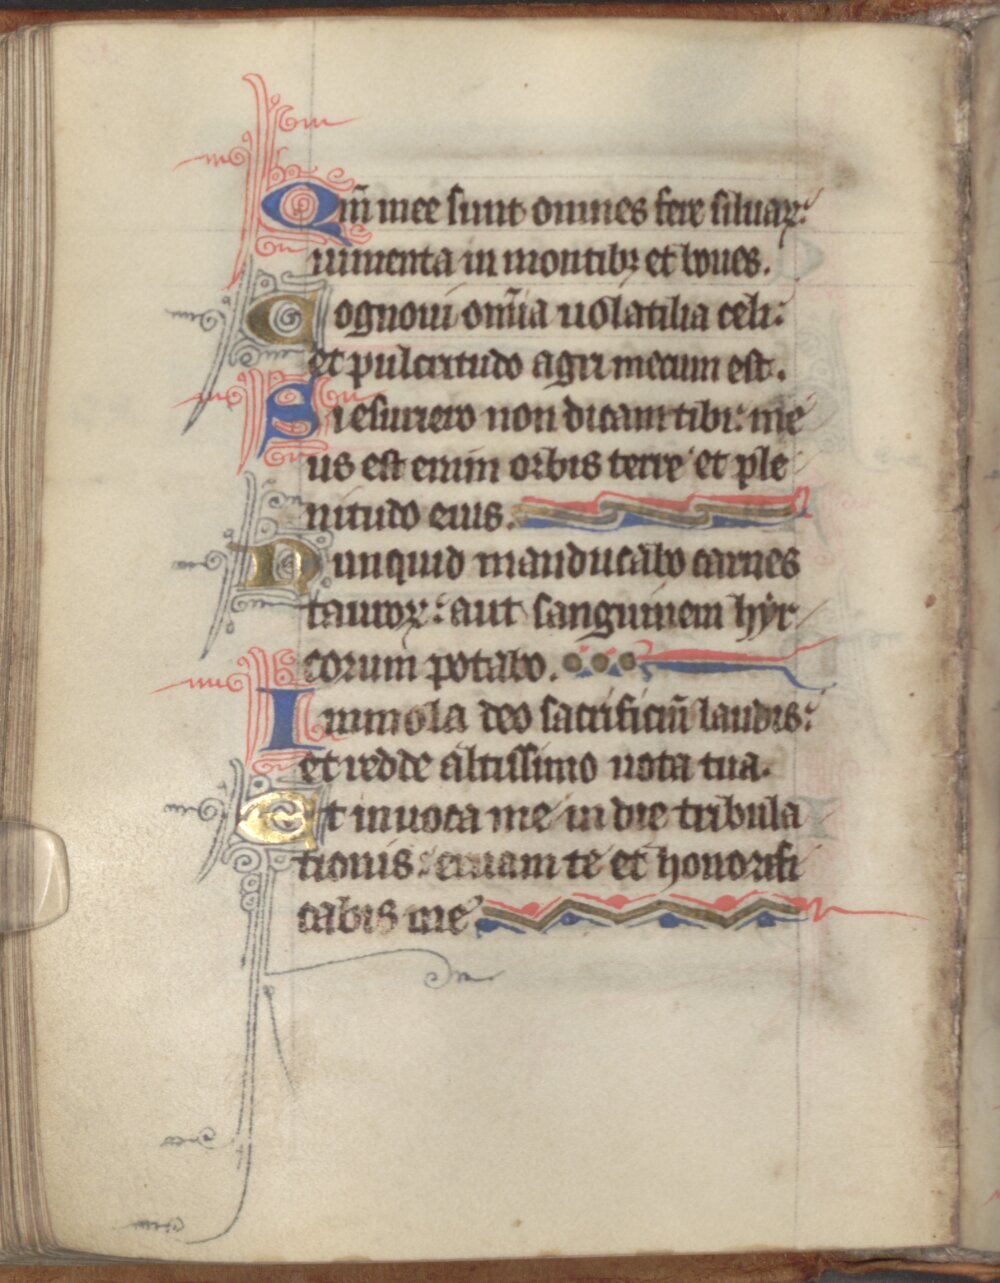 Qm̅ mee sunt omnes fere siluaꝝ:
iumenta in montibꝫ et boues.
Cognoui om̅ia uolatilia celi:
et pulcritudo agri mecum est.
Si esuriero non dicam tibi: me
us est enim orbis terre et ple
nitudo eius.
Nunquid manducabo carnes
tauroꝝ: aut sanguinem hyr
corum potabo.
Immola deo sacrificiu̅ laudis:
et redde altissimo uota tua.
Et inuoca me in die tribula
tionis: eruam te et honorifi
cabis me